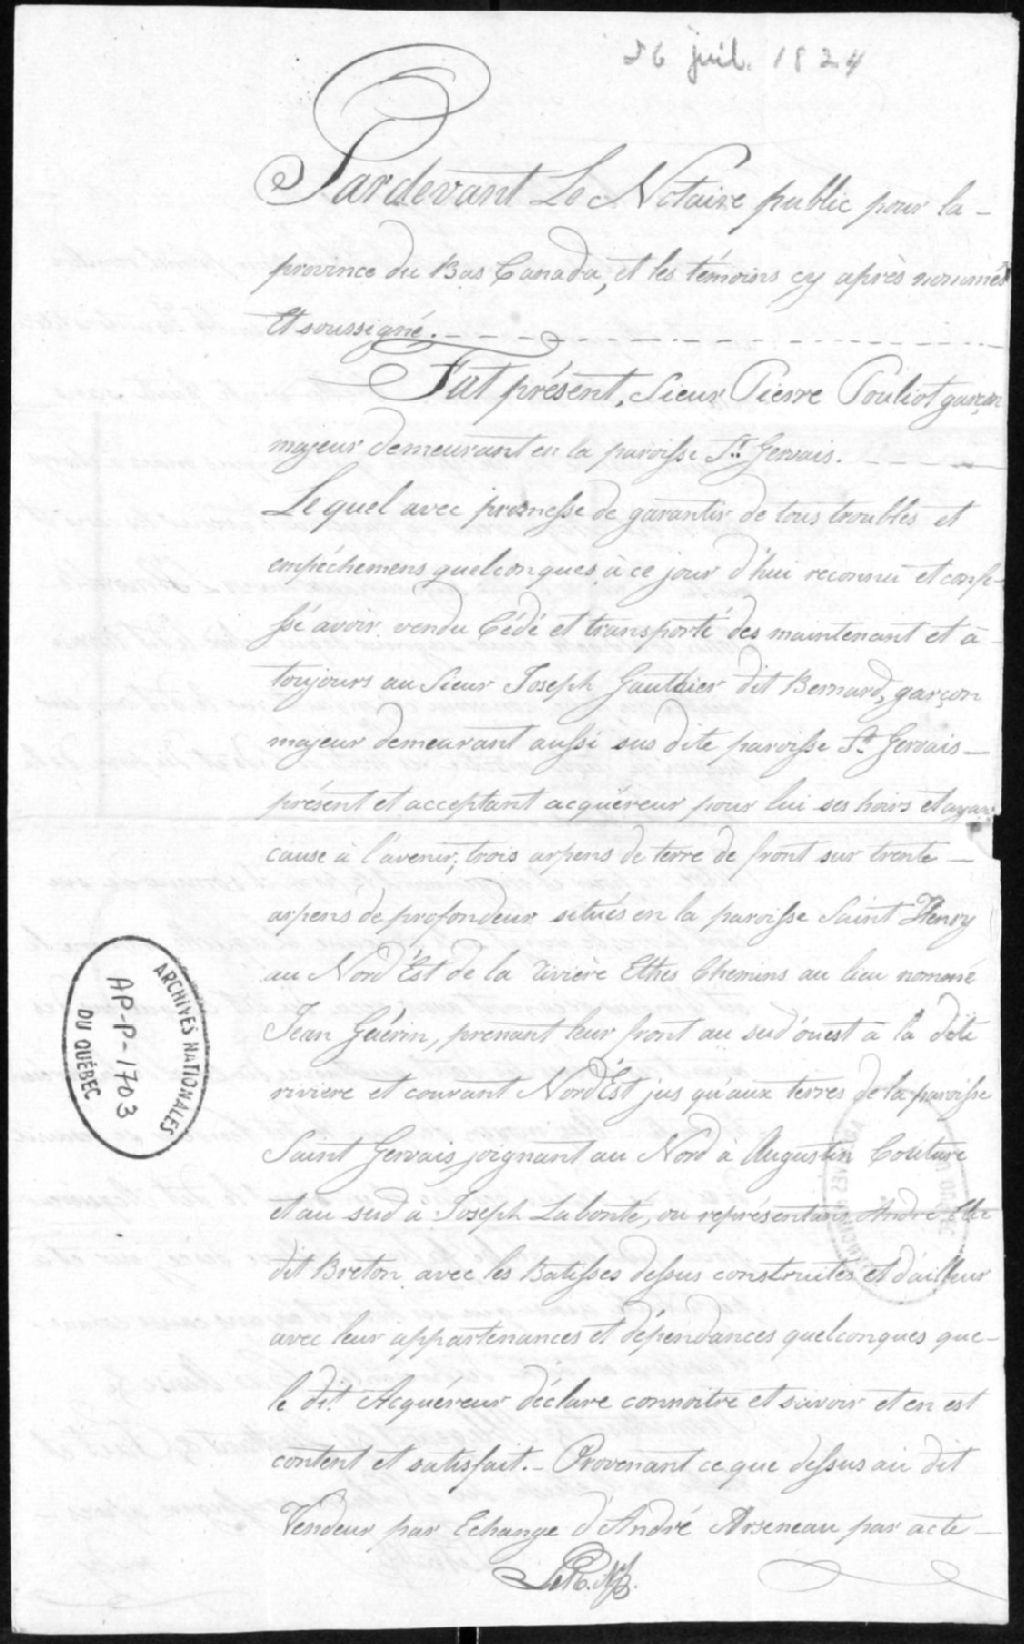 26 juil. 1824
Pardevant Le Notaire public pour la -
province du Bas Canada, et les témoins cy après nommés
Et soussigné. - - -
Fut présent, Sieur Pierre Pouliot garçon
majeur demeurant en la paroisse St. Gervais. - - -
Le quel avec promesse de garantir de tous troubles et
empéchemens quelconques, à ce jour d'hui reconnu et confe-
ssé avoir vendu Cédé et transporté dès maintenant et à -
toujours au Sieur Joseph Gauthier dit Bernard, garçon
majeur demeurant aussi sus dite paroisse St. Gervais -
présent et acceptant acquéreur pour lui ses hoirs et ayans
cause à l'avenir, trois arpens de terre de front sur trente -
arpens de profondeur situés en la paroisse Saint Henry
au Nord Est de la rivière Ethes Chemins au lieu nommé
Jean Guérin, prenant leur front au sud'ouest à la dite
riviere et courant Nord'Est jus qu'aux terres de la paroisse
Saint Gervais, joignant au Nord à Augustin Couture
et au sud à Joseph Labonté, ou représentans André Elie
dit Breton avec les Batisses dessus construites et d'ailleur
avec leur appartenances et dépendances quelconques que -
le dit Acquéreur déclare connoitre et savoir et en est
content et satisfait. - Provenant ce que dessus au dit
Vendeur par Echange d'André Arseneau par acte -
ARCHIVES NATIONALES
AP-P-1703
DU QUÉBEC